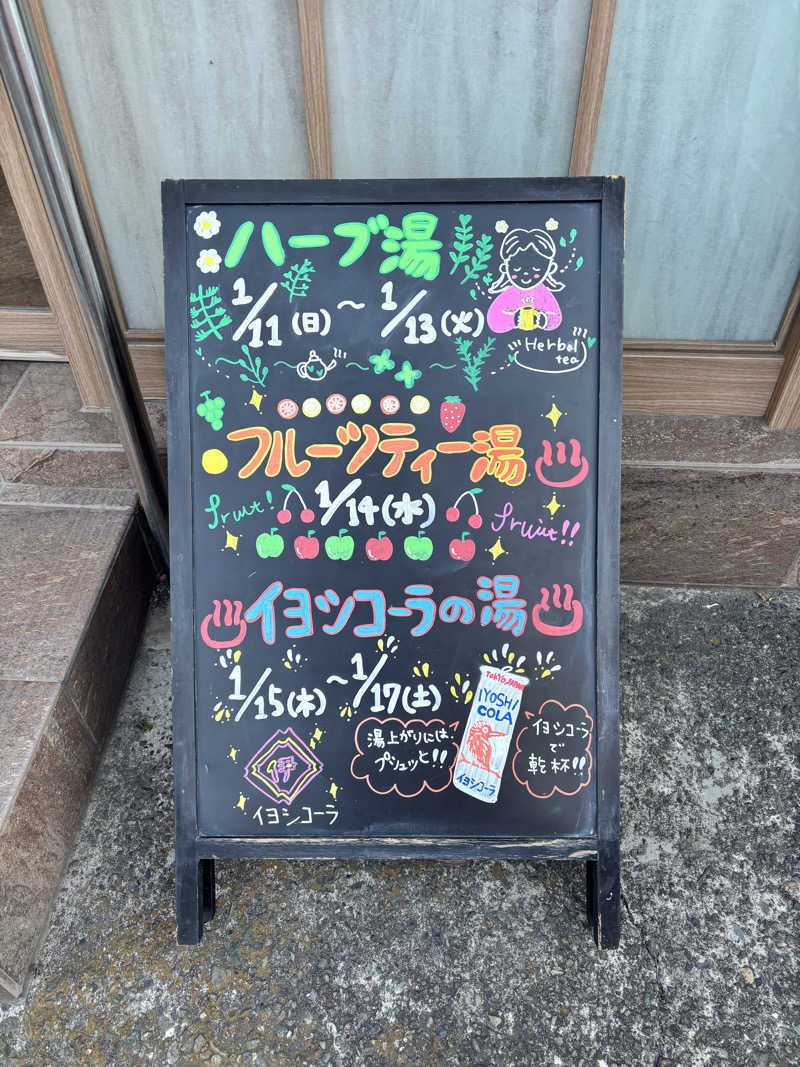 ハーブ湯
1/11(日) ～ 1/13(火)
Herbal
tea
フルーツティー湯
fruit!
1/14(水)
fruit!!
イヨシコーラの湯
1/15(木) ～ 1/17(土)
TOKYO, JAPAN
IYOSHI
COLA
イヨシコーラ
湯上がりには
プシュッと!!
イヨシコーラ
で
乾杯!!
イヨシコーラ